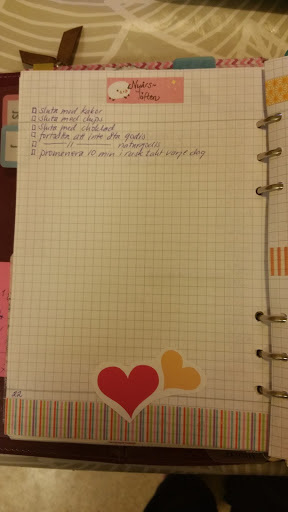 Nyårs-
löften
sluta med kakor
sluta med chips
sluta med choklad
fortsätta att inte äta godis
— 11 — naturgodis
promenera 15 min i rask takt varje dag
22.